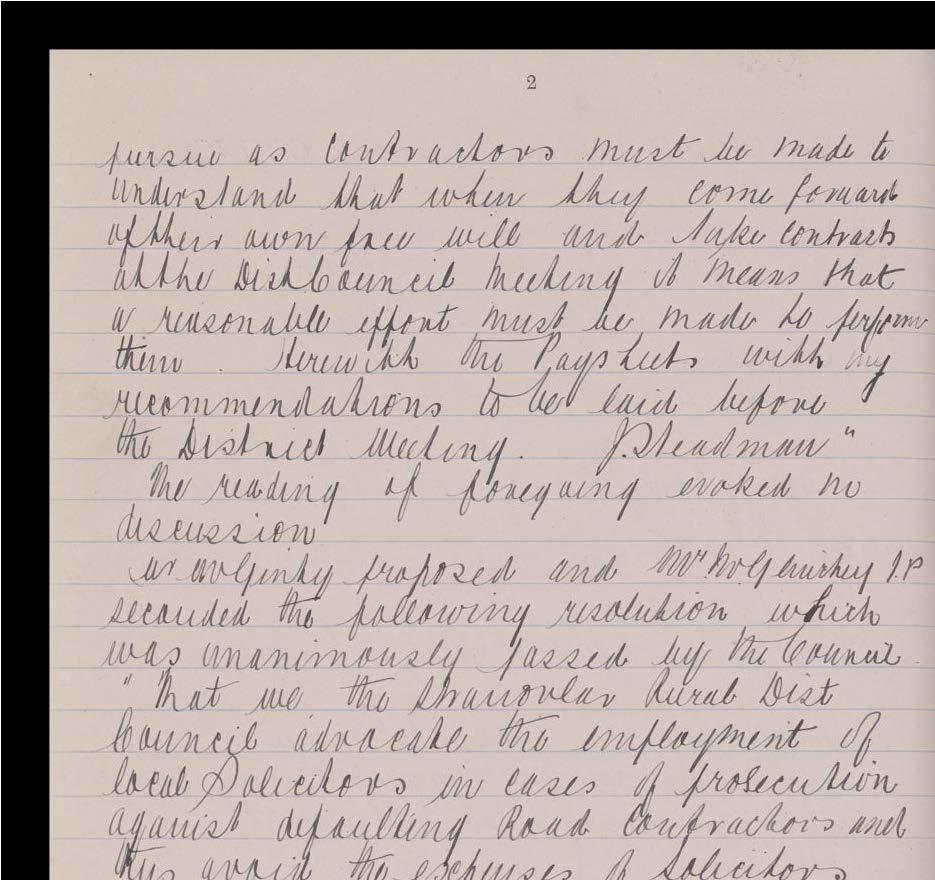 2
pursue as contractors must be made to
understand that when they come forward
of their own free will and take contracts
at the Dist Council Meeting it means that
a reasonable effort must be made to perform
them. Herewith the Paysheets with my
recommendations to be laid before
the District Meeting. J. Steadman"
The reading of foregoing evoked no
discussion
proposed and Mr. J.P
seconded the following resolution which
was unanimously passed by the Council.
"That we the Rural Dist
Council advocate the employment of
local Solicitors in cases of prosecution
against defaulting Road Contractors and
thus avoid the expenses of Solicitors